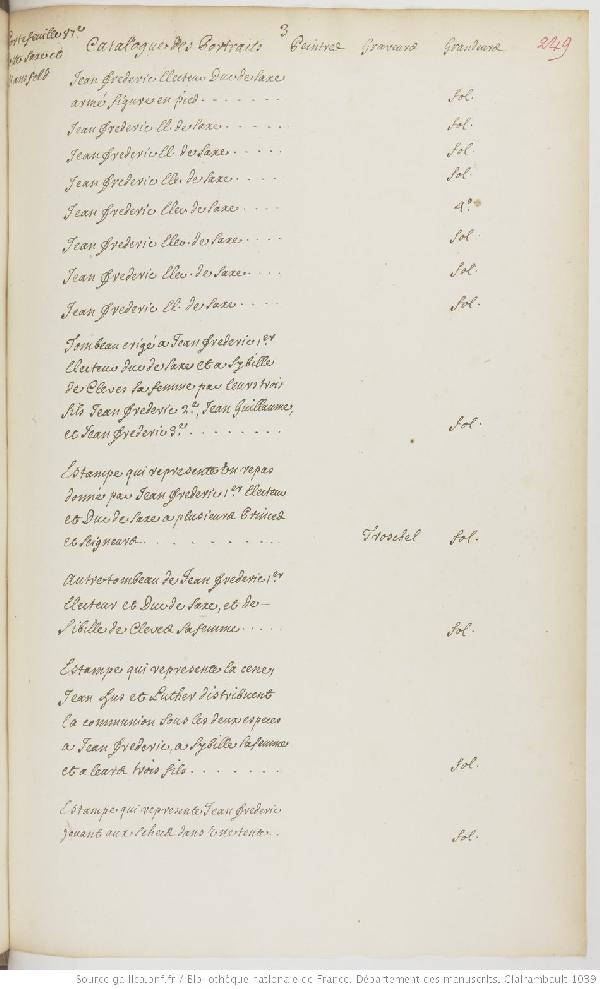 3
Portefeuille 47.e
Saxe et
Mansfeld
Catalogue des Portraits Peintres Graveurs Grandeurs 249
Jean frederic Electeur Duc de Saxe
armé, figure en pied . . . . . . . fol.
Jean frederic El. de Saxe . . . . . fol.
Jean frederic El. de Saxe . . . . . fol.
Jean frederic Ele. de Saxe . . . . fol.
Jean frederic Elec de Saxe . . . . 4.º
Jean frederic Elec. de Saxe . . . . fol.
Jean frederic Elec. de Saxe . . . fol.
Jean frederic El. de Saxe . . . . fol.
Tombeau erigé a Jean frederic 1.er
Electeur duc de Saxe et a Sybille
de Cleves sa femme par leurs trois
fils Jean frederic 2.e, Jean Guillaume,
et Jean frederic 3.e . . . . . . . . fol.
Estampe qui represente Un repas
donné par Jean frederic 1.er Electeur
et Duc de Saxe a plusieurs Princes
et Seigneurs . . . . . . . . . . Troschel fol.
Autre tombeau de Jean frederic 1.er
Electeur et Duc de Saxe, et de
Sibille de Cleves sa femme . . . . . fol.
Estampe qui represente la cene,
Jean hus et Luther distribuent
la communion sous les deux especes
a Jean frederic, a Sybille sa femme
et a leurs trois fils . . . . . . . fol.
Estampe qui represente Jean frederic
jouant aux Echecs dans Une tente . . fol.
Source gallica.bnf.fr / Bibliothèque nationale de France. Département des manuscrits. Clairambault 1039